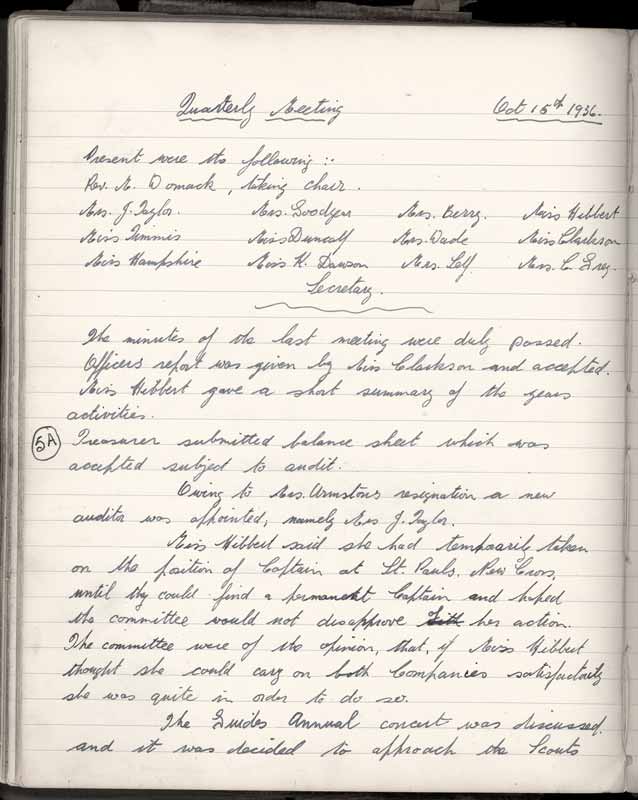 Quarterly Meeting Oct 15th 1936.
Present were the following :-
Rev. N. Womack, taking chair.
Mrs. J. Taylor. Mrs. Goodger Mrs. Berry. Miss Hibbert
Miss Timmis Miss Duncalf Mrs. Wade Miss Clarkson
Miss Hampshire Miss K. Dawson Mrs. Self Mrs. C. Grey.
Secretary.
The minutes of the last meeting were duly passed.
Officers report was given by Miss Clarkson and accepted.
Miss Hibbert gave a short summary of the years
activities.
5A Treasurer submitted balance sheet which was
accepted subject to audit.
Owing to Mrs. Armstons resignation a new
auditor was appointed, namely Mrs J. Taylor.
Miss Hibbert said she had temporarily taken
on the position of Captain at St. Pauls. New Cross,
until they could find a permanent Captain and hoped
the committee would not disapprove her action.
The committee were of the opinion, that, if Miss Hibbert
thought she could cary on both Companies satisfactorily
she was quite in order to do so.
The Guides Annual concert was discussed.
and it was decided to approach the Scouts